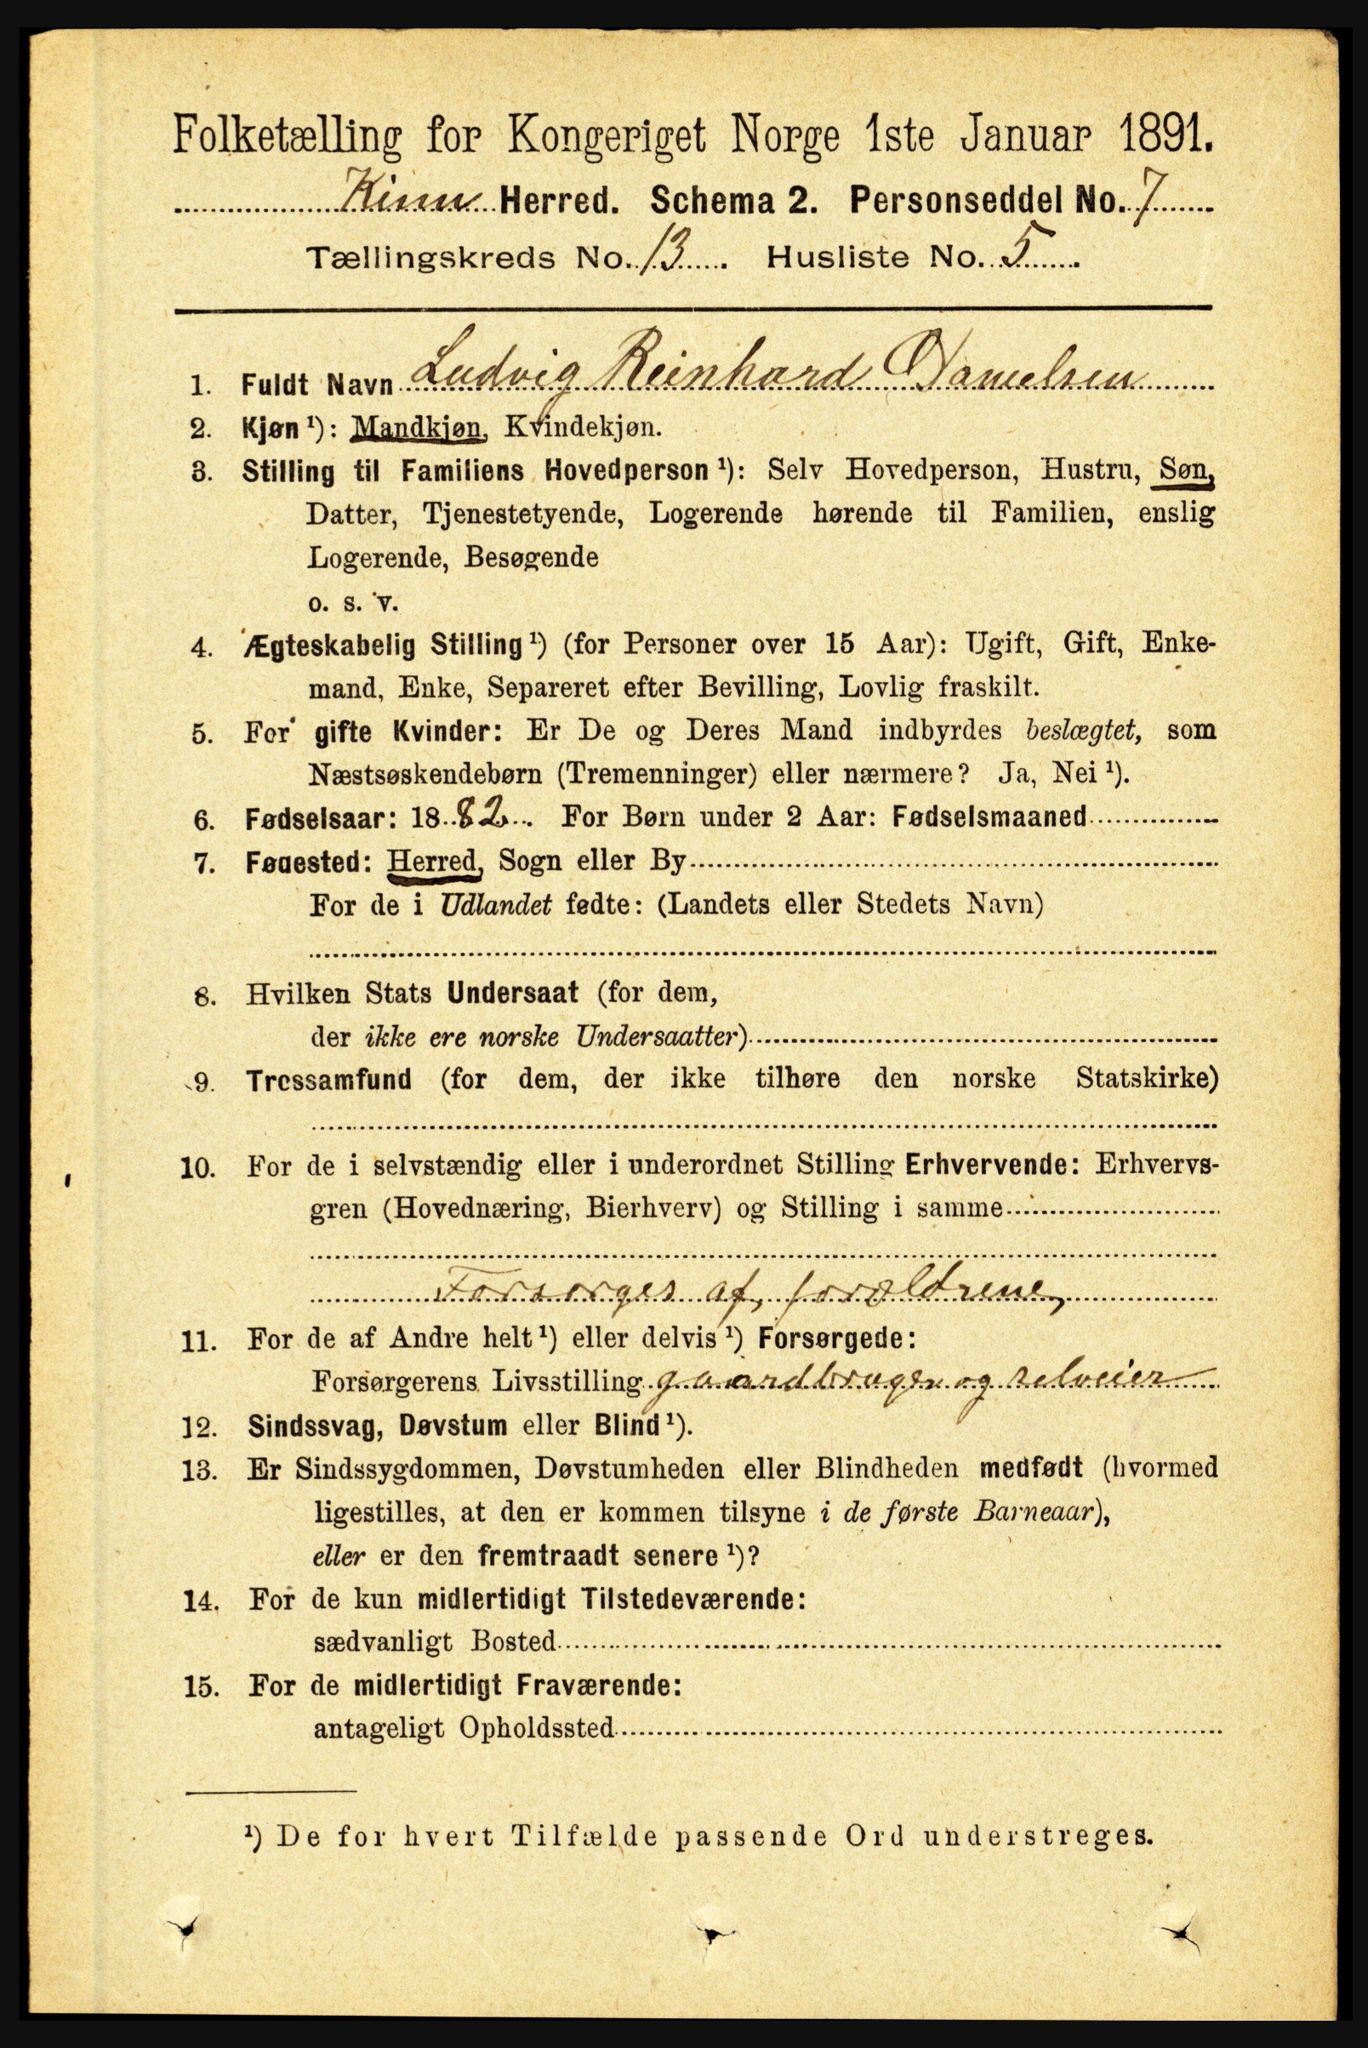 Folketælling for Kongeriget Norge 1ste Januar 1891.
Kinn Herred. Schema 2. Personseddel No. 7
Tællingskreds No. 13. Husliste No. 5.
1. Fuldt Navn Ludvig Reinhard Danielsen
2. Kjøn ¹): Mandkjøn, Kvindekjøn.
3. Stilling til Familiens Hovedperson ¹): Selv Hovedperson, Hustru, Søn,
Datter, Tjenestetyende, Logerende hørende til Familien, enslig
Logerende, Besøgende
o. s. v.
4. Ægteskabelig Stilling ¹) (for Personer over 15 Aar): Ugift, Gift, Enke-
mand, Enke, Separeret efter Bevilling, Lovlig fraskilt.
5. For gifte Kvinder: Er De og Deres Mand indbyrdes beslægtet, som
Næstsøskendebørn (Tremenninger) eller nærmere? Ja, Nei ¹).
6. Fødselsaar: 1882. For Børn under 2 Aar: Fødselsmaaned
7. Fødested: Herred, Sogn eller By
For de i Udlandet fødte: (Landets eller Stedets Navn)
8. Hvilken Stats Undersaat (for dem,
der ikke ere norske Undersaatter)
9. Trossamfund (for dem, der ikke tilhøre den norske Statskirke)
10. For de i selvstændig eller i underordnet Stilling Erhvervende: Erhvervs-
gren (Hovednæring, Bierhverv) og Stilling i samme
Forsørges af, forældrene,
11. For de af Andre helt ¹) eller delvis ¹) Forsørgede:
Forsørgerens Livsstilling gaardbruger og selveier
12. Sindssvag, Døvstum eller Blind ¹).
13. Er Sindssygdommen, Døvstumheden eller Blindheden medfødt (hvormed
ligestilles, at den er kommen tilsyne i de første Barneaar),
eller er den fremtraadt senere ¹)?
14. For de kun midlertidigt Tilstedeværende:
sædvanligt Bosted
15. For de midlertidigt Fraværende:
antageligt Opholdssted
¹) De for hvert Tilfælde passende Ord understreges.